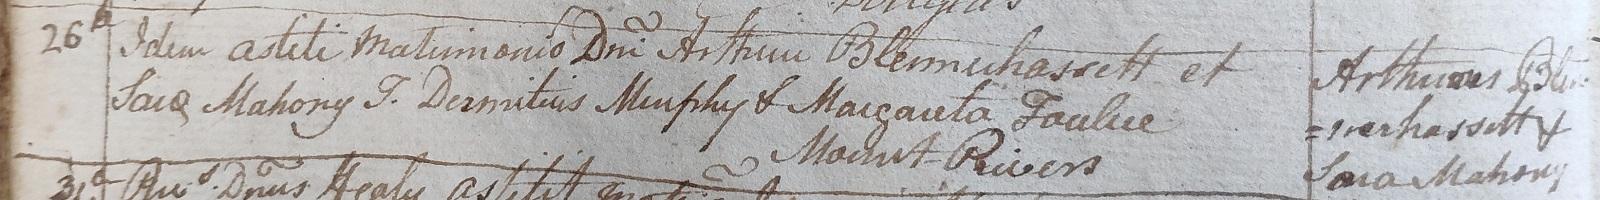 Douglas
26th Idem astiti Matrimonio Dni Arthuri Blennerhassett et
Saræ Mahony T. Dermitius Murphy & Margarita Foulue
Mount Rivers
Arthurus Blen
=nerhassett &
Sara Mahony
31st Revs. Dnus Healy astitit